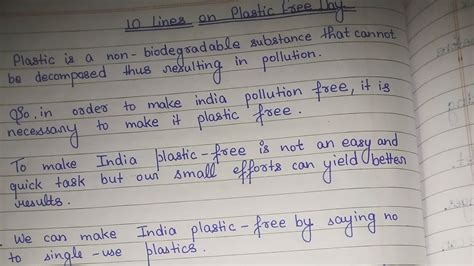 10 Lines on Plastic free Day
Plastic is a non-biodegradable substance that cannot
be decomposed thus resulting in pollution.
So, in order to make india pollution free, it is
necessary to make it plastic free.
To make India plastic-free is not an easy and
quick task but our small efforts can yield better
results.
We can make India plastic-free by saying no
to single-use plastics.